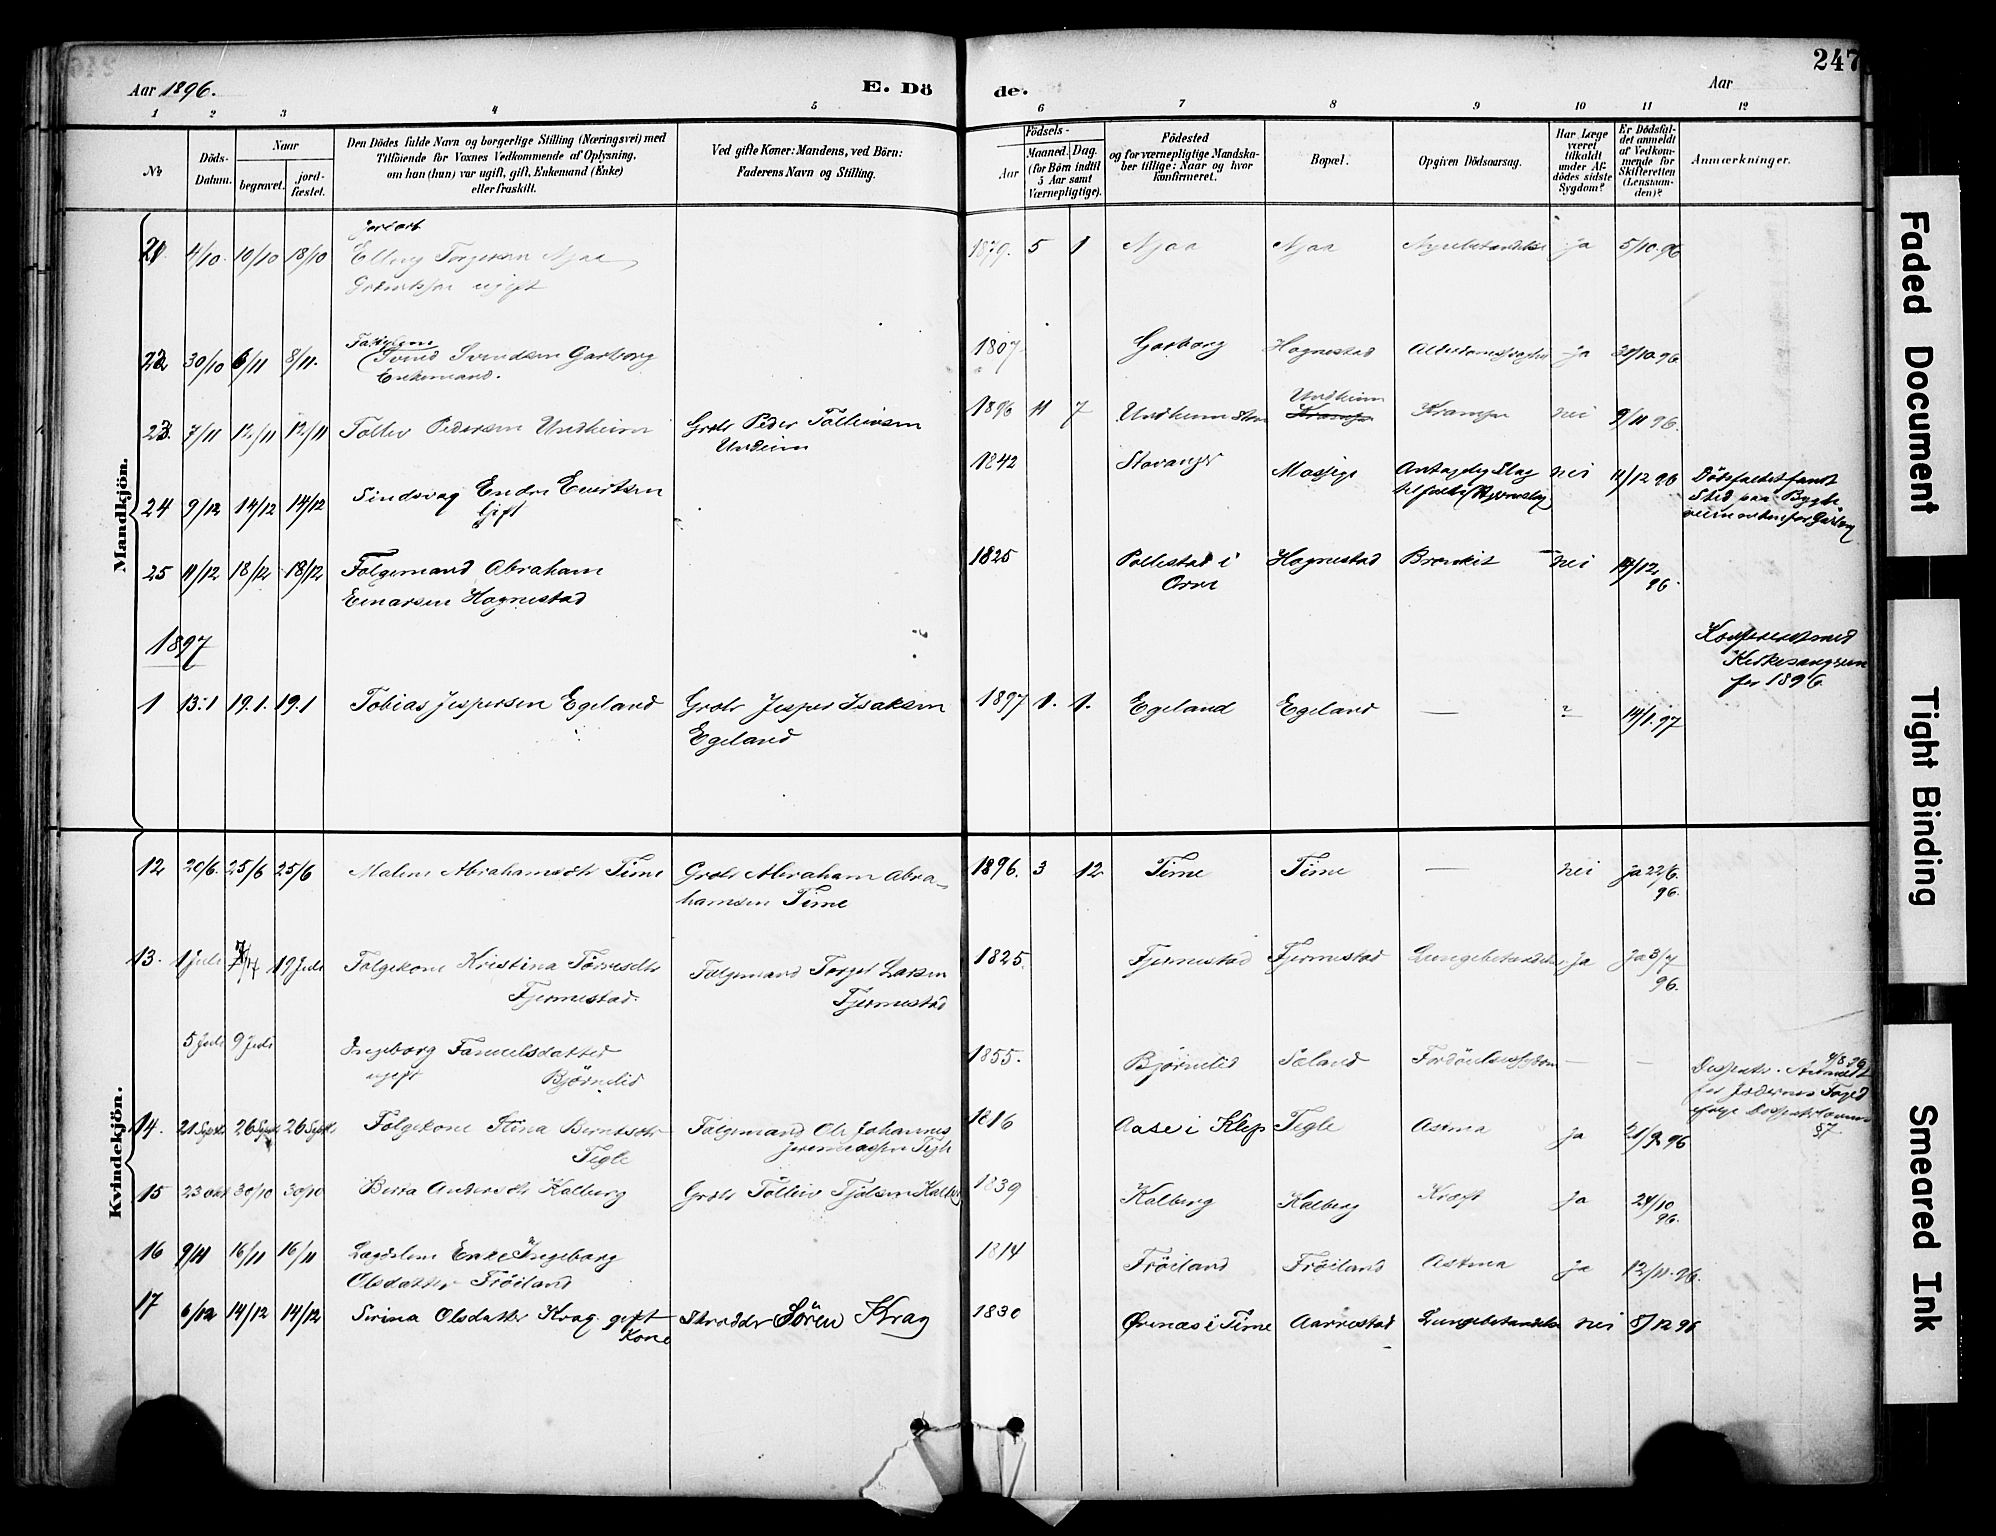 247
Aar 1896.
E. Dö
de.
Aar
1 2 3 4 5 6 7 8 9 10 11 12
No
Döds-
Datum.
Naar
begravet.
jord-
fæstet.
Den Dödes fulde Navn og borgerlige Stilling (Næringsvei) med
Tilföiende for Voxnes Vedkommende af Oplysning,
om han (hun) var ugift, gift, Enkemand (Enke)
eller fraskilt.
Ved gifte Koner: Mandens, ved Börn:
Faderens Navn og Stilling.
Födsels-
Aar
Maaned. Dag.
(for Börn indtil
5 Aar samt
Værnepligtige).
Födested
og for værnepligtige Mandska-
ber tillige: Naar og hvor
konfirmeret.
Bopæl.
Opgiven Dödsaarsag.
Har Læge
været
tilkaldt
under Af-
dödes sidste
Sygdom?
Er Dödsfal-
det anmeldt
af Vedkom-
mende for
Skifteretten
(Lensman-
den)?
Anmærkninger.
Mandkjön.
21. 4/10. 10/10 18/10 Njaa
ugift
1879. 5 1 Njaa Njaa ja 5/10.96
22 30/10 6/11 8/11. Svend Svendsen Garborg
Enkemand.
1807 Garborg Hognestad ja 30/10 96
23. 7/11 12/11 12/11 Tollev Pedersen Undheim Grdr Peder Tolleivsen
Undheim
1896 11 7 Undheim Undheim
Krampe nei 9/11 96.
24 9/12 14/12 14/12 Sindsvag Endre Evertsen
Gift
1842 Stavanger Mossige Antagelig Slag nei 11/12 96 Dödsfaldet fandt
Sted paa Bygde
25 11/12 18/12 18/12 Folgemand Abraham
Einarsen Hognestad
1825 Pollestad i
Orre
Hognestad Bronkit nei 14/12
96.
1897
Konfereret med
for 1896.
1 13.1 19.1. 19.1 Tobias Jespersen Egeland Grdr Jesper Isaksen
Egeland
1897 1. 1. Egeland Egeland — ? 14/1.97
Kvindekjön.
12 20/6. 25/6 25/6 Malene Abrahamsdtr Time Grdr Abraham Abra-
hamsen Time
1896. 3 12. Time Time — nei ja 22/6.
96.
13. 1 Juli 19 Juli Folgekone Kristina Tørresdtr
Fjermestad.
Folgemand Torger Larsen
Fjermestad
1825. Fjermestad Fjermestad Lungebetændelse ja ja 3/7
96.
5 Juli 9 Juli Ingeborg Samuelsdatter
ugift Björnelid
1855. Björnelid Sæland — —
14. 21 Septbr 26 Septbr 26 Septbr Folgekone Stina Berntsdtr
Tegle
Folgemand Ole Johannes
1816 Aase i Klep Tegle Astma ja 21/9 96
15 23 okt 30/10 30/10 Berta Andersdtr Kalberg Grdr Tolleiv Kalberg
1839 Kalberg Kalberg Kræft ja 24/10
96.
16 9/11 16/11 16/11 Lægdslem Enke Ingeborg
Olsdatter Fröiland
1814 Fröiland Fröiland Astma ja 12/11.96.
17 6/12 14/12 14/12 Serina Olsdatter Krag gift
Kone
Skrædder Sören Krag
1830 i Time Aarrestad Lungebetændelse nei 8/12 96
Faded Document
Tight Binding
Smeared Ink